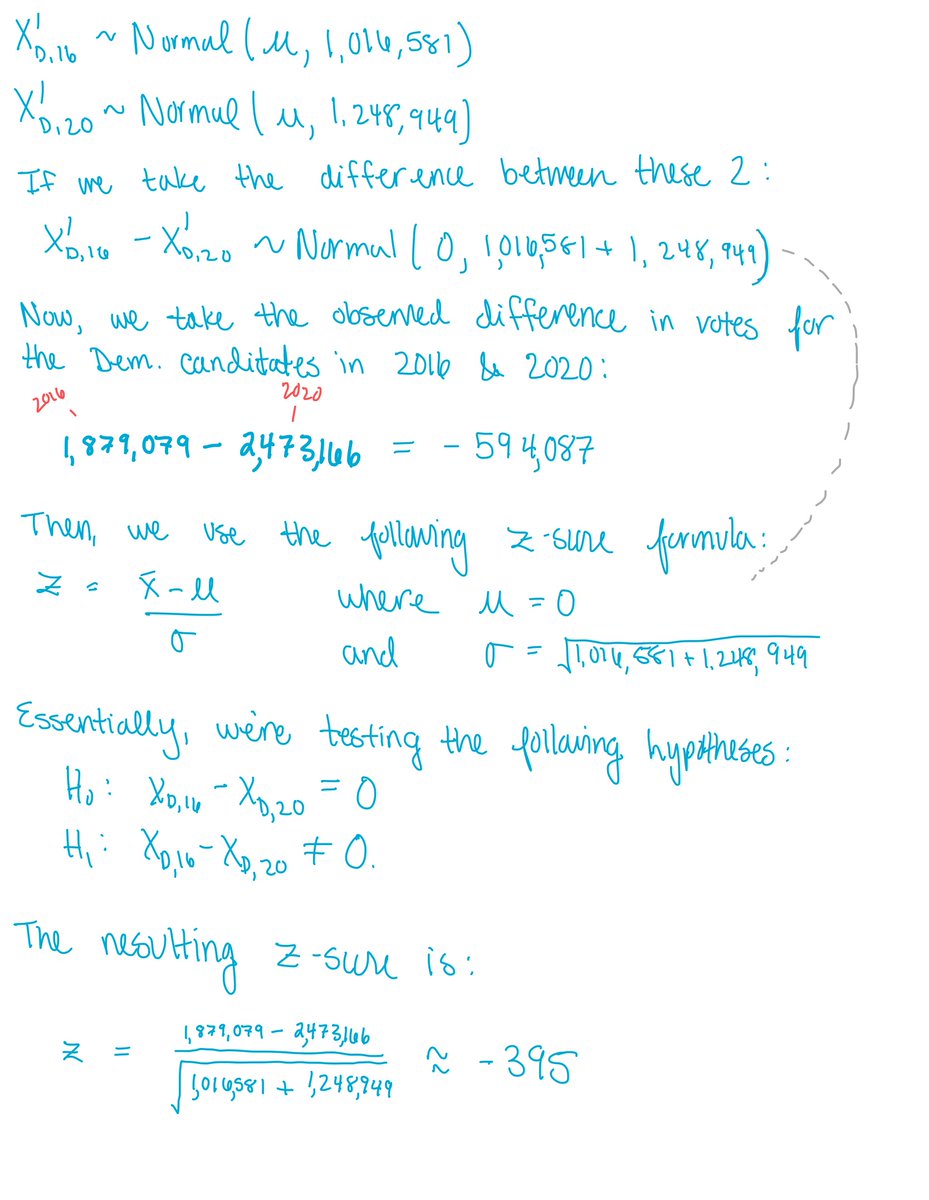 X'D,16 ~ Normal(μ, 1,016,581)
X'D,20 ~ Normal(μ, 1,248,949)
If we take the difference between these 2:
X'D,16 − X'D,20 ~ Normal(0, 1,016,581 + 1,248,949)
Now, we take the observed difference in votes for
the Dem. canditates in 2016 & 2020:
2016 2020
1,879,079 − 2,473,166 = −594,087
Then, we use the following z-score formula:
z = x̄ − μ / σ where μ = 0
and σ = √1,016,581 + 1,248,949
Essentially, we're testing the following hypotheses:
H0: XD,16 − XD,20 = 0
H1: XD,16 − XD,20 ≠ 0.
The resulting z-score is:
z = 1,879,079 − 2,473,166 / √1,016,581 + 1,248,949 ≈ −395